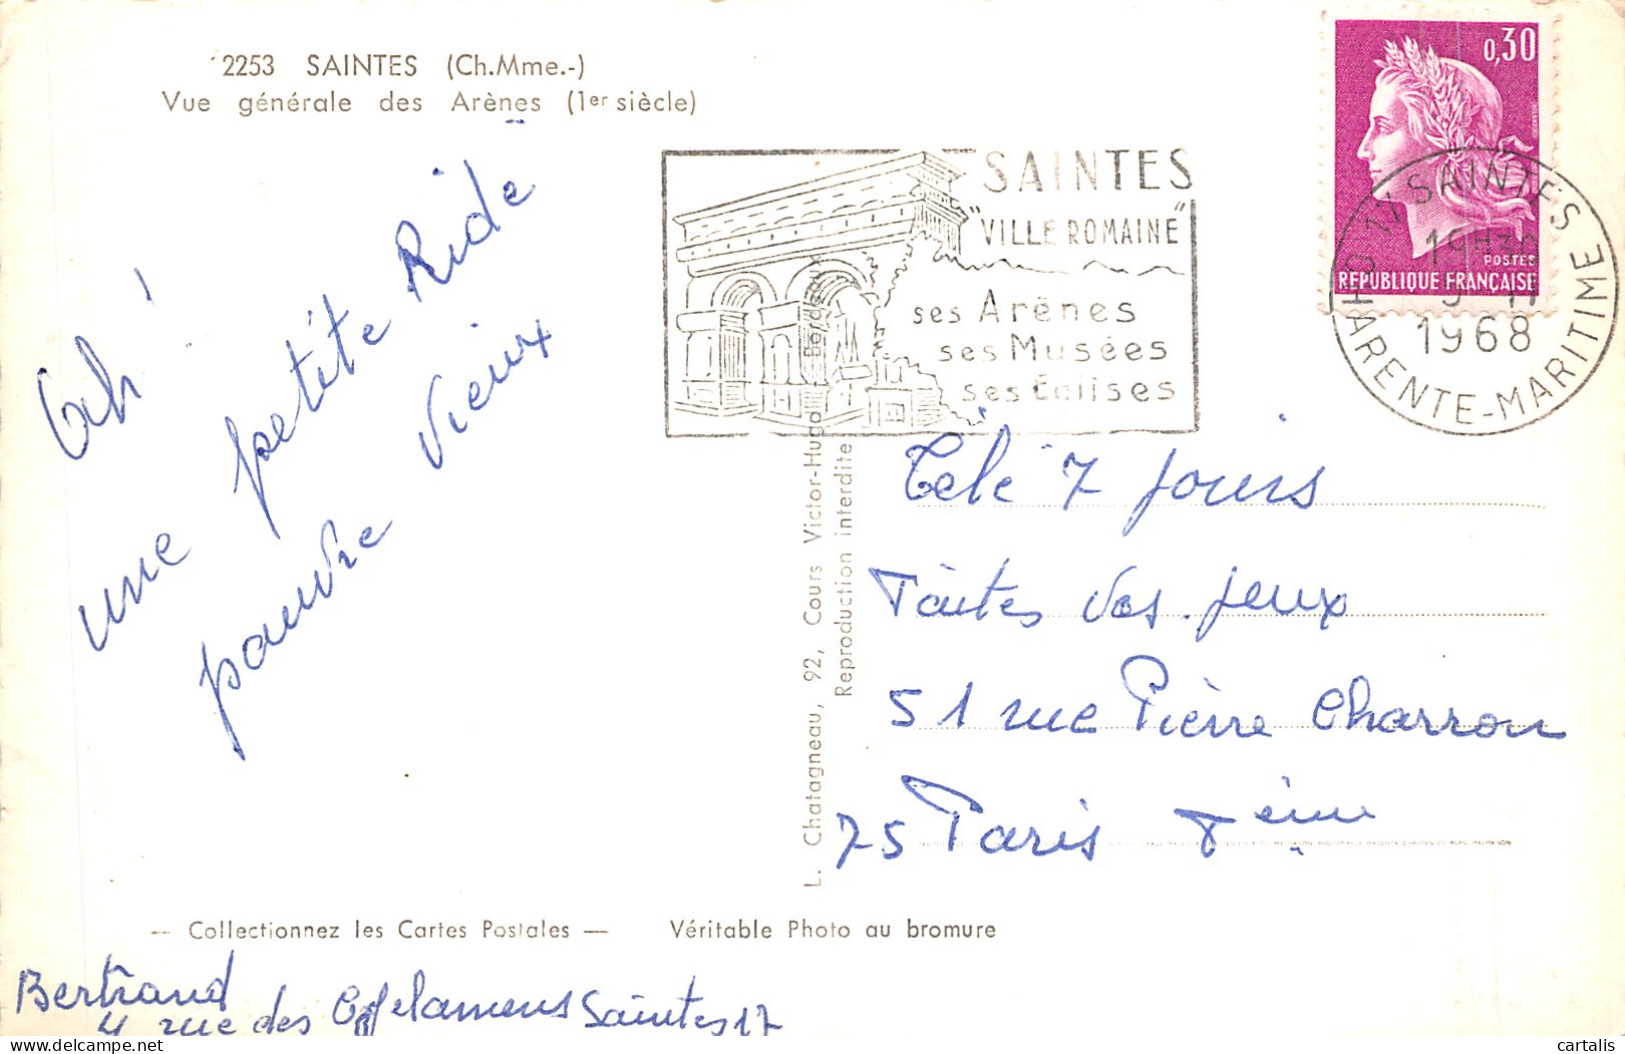 2253 SAINTES (Ch.Mme.-)
Vue générale des Arènes (1er siècle)
SAINTES
"VILLE ROMAINE"
ses Arènes
ses Musées
ses Églises
0,30
POSTES
RÉPUBLIQUE FRANÇAISE
17 SAINTES
CHARENTE-MARITIME
1968
Oh !
une petite Ride
pauvre vieux
Télé 7 jours
Faites vos jeux
51 rue Pierre Charron
75 Paris 8ème
L. Chatagneau, 92, Cours Victor-Hugo Bordeaux
Reproduction interdite
— Collectionnez les Cartes Postales — Véritable Photo au bromure
Bertrand
4 rue des Saintes 17
cartalis